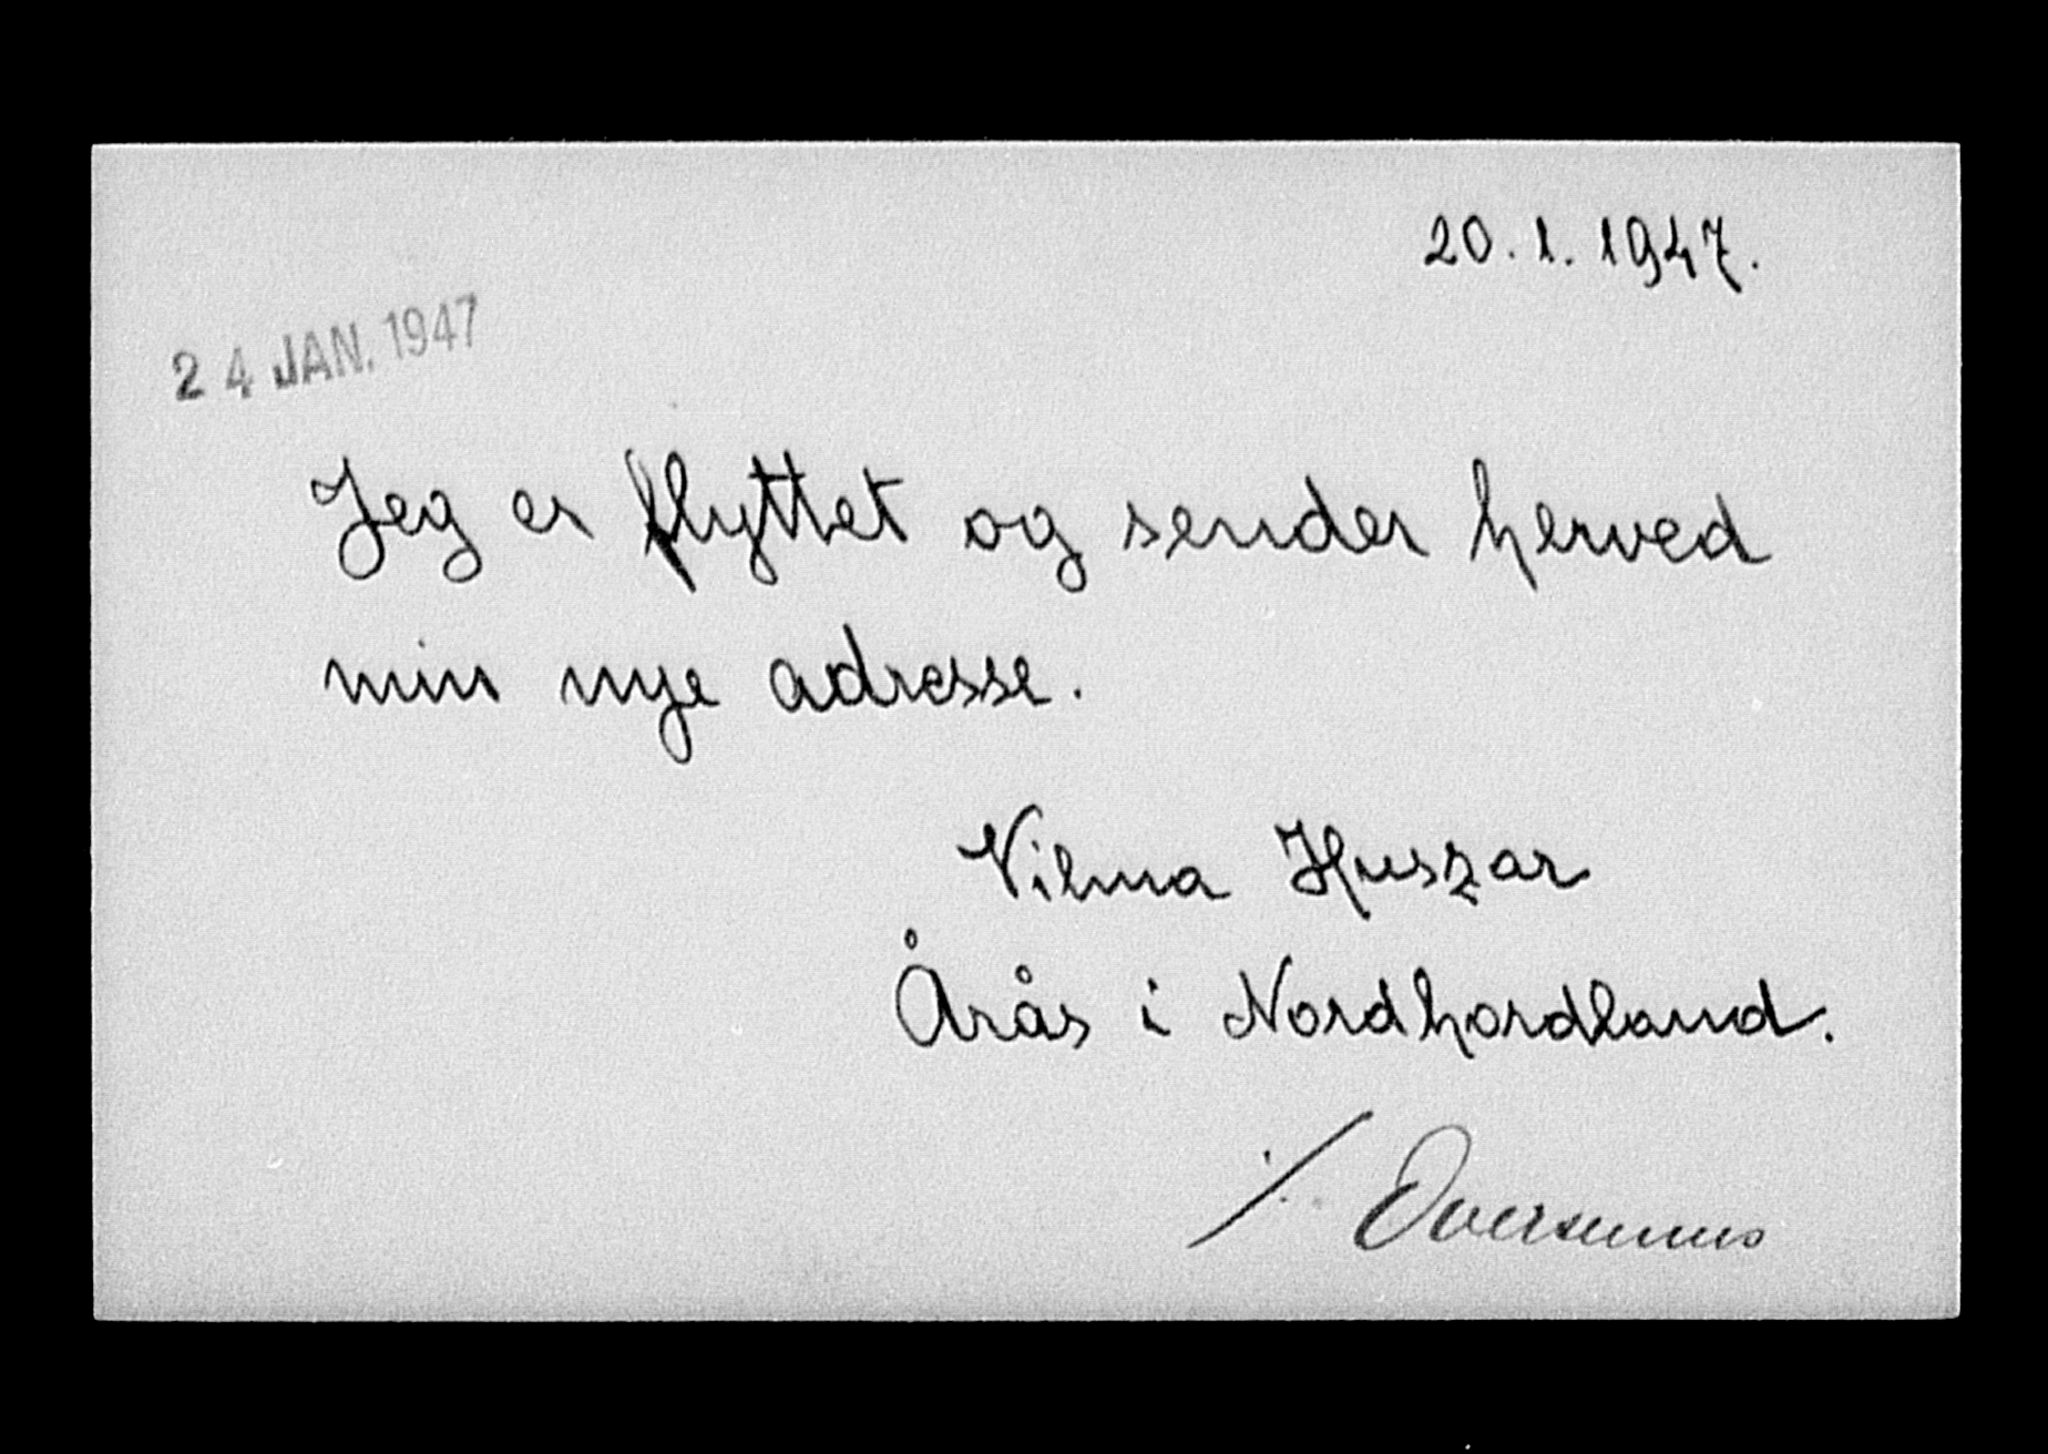 20.1.1947.
24 JAN. 1947
Jeg er flyttet og sender herved
min nye adresse.
Vilma Huszar
Årås i Nordhordland.